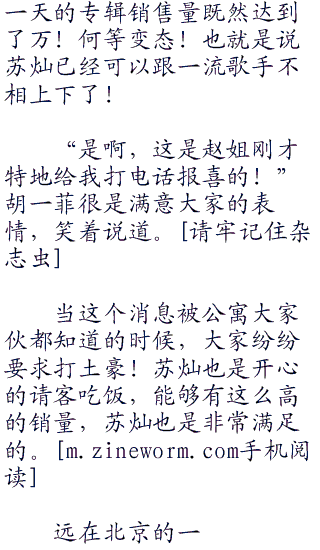 一天的专辑销售量既然达到
了万！何等变态！也就是说
苏灿已经可以跟一流歌手不
相上下了！
“是啊，这是赵姐刚才
特地给我打电话报喜的！”
胡一菲很是满意大家的表
情，笑着说道。[请牢记住杂
志虫]
当这个消息被公寓大家
伙都知道的时候，大家纷纷
要求打土豪！苏灿也是开心
的请客吃饭，能够有这么高
的销量，苏灿也是非常满足
的。[m.zineworm.com手机阅
读]
远在北京的一